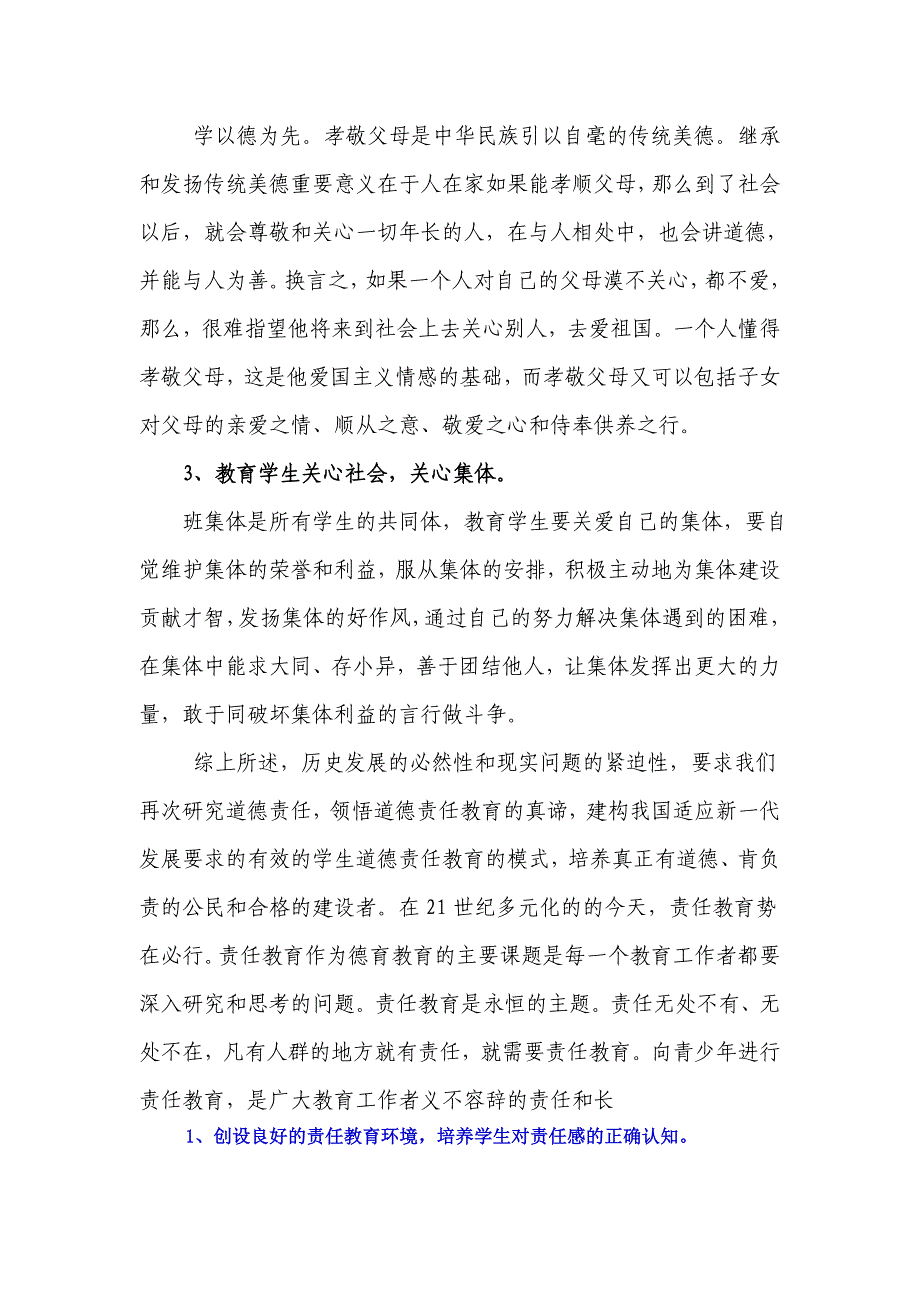 学以德为先。孝敬父母是中华民族引以自毫的传统美德。继承
和发扬传统美德重要意义在于人在家如果能孝顺父母，那么到了社会
以后，就会尊敬和关心一切年长的人，在与人相处中，也会讲道德，
并能与人为善。换言之，如果一个人对自己的父母漠不关心，都不爱，
那么，很难指望他将来到社会上去关心别人，去爱祖国。一个人懂得
孝敬父母，这是他爱国主义情感的基础，而孝敬父母又可以包括子女
对父母的亲爱之情、顺从之意、敬爱之心和侍奉供养之行。
3、教育学生关心社会，关心集体。
班集体是所有学生的共同体，教育学生要关爱自己的集体，要自
觉维护集体的荣誉和利益，服从集体的安排，积极主动地为集体建设
贡献才智，发扬集体的好作风，通过自己的努力解决集体遇到的困难，
在集体中能求大同、存小异，善于团结他人，让集体发挥出更大的力
量，敢于同破坏集体利益的言行做斗争。
综上所述，历史发展的必然性和现实问题的紧迫性，要求我们
再次研究道德责任，领悟道德责任教育的真谛，建构我国适应新一代
发展要求的有效的学生道德责任教育的模式，培养真正有道德、肯负
责的公民和合格的建设者。在 21 世纪多元化的的今天，责任教育势
在必行。责任教育作为德育教育的主要课题是每一个教育工作者都要
深入研究和思考的问题。责任教育是永恒的主题。责任无处不有、无
处不在，凡有人群的地方就有责任，就需要责任教育。向青少年进行
责任教育，是广大教育工作者义不容辞的责任和长
1、创设良好的责任教育环境，培养学生对责任感的正确认知。